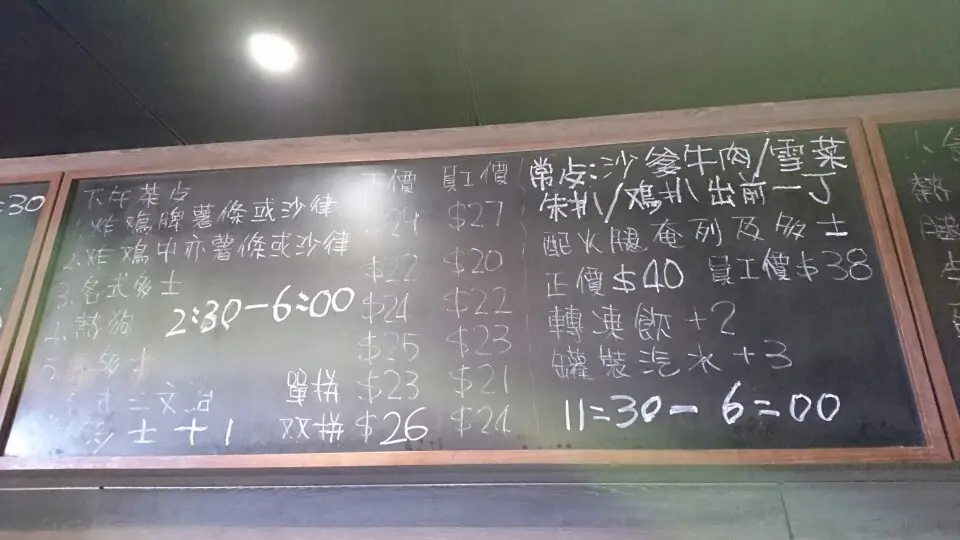 :30
下午茶点
下價 員工價
1.炸鳮脾薯條或沙律 $24 $27
2.炸鳮中亦薯條或沙律 $22 $20
3.各式多士 $24 $22
4.熱狗 $25 $23
2:30-6:00
5.
單拼 $23 $21
士+1 双拼 $26 $24
常点:沙爹牛肉/雪菜
朱扒/鳮扒出前一丁
配火腿奄列及多士
正價$40 員工價$38
轉凍飲+2
罐裝汽水+3
11:30-6:00